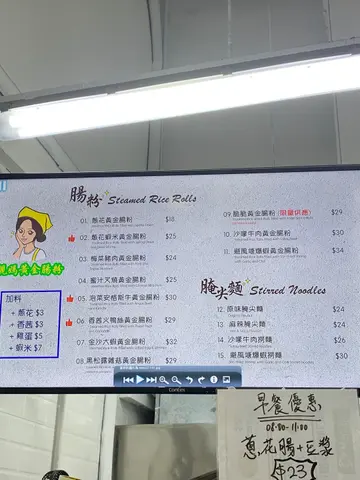 腸粉 Steamed Rice Rolls
01. 蔥花黃金腸粉 $18
02. 蔥花蝦米黃金腸粉 $25
03. 梅菜豬肉黃金腸粉 $24
04. 蜜汁叉燒黃金腸粉 $25
05. 泡菜安格斯牛黃金腸粉 $30
06. 香茜火鴨絲黃金腸粉 $29
07. 金沙大蝦黃金腸粉 $32
08. 黑松露雜菇黃金腸粉 $29
09. 脆脆黃金腸粉 (限量供應) $29
10. 沙嗲牛肉黃金腸粉 $30
11. 避風塘爆蝦黃金腸粉 $34
醃尖麵 Stirred Noodles
12. 原味醃尖麵 $24
13. 麻辣醃尖麵 $24
14. 沙嗲牛肉撈麵 $26
15. 避風塘爆蝦撈麵 $30
黃金腸粉
加料
+ 蔥花 $3
+ 香茜 $3
+ 雞蛋 $5
+ 蝦米 $7
早餐優惠
08:00-11:00
蔥花腸+豆漿
$23